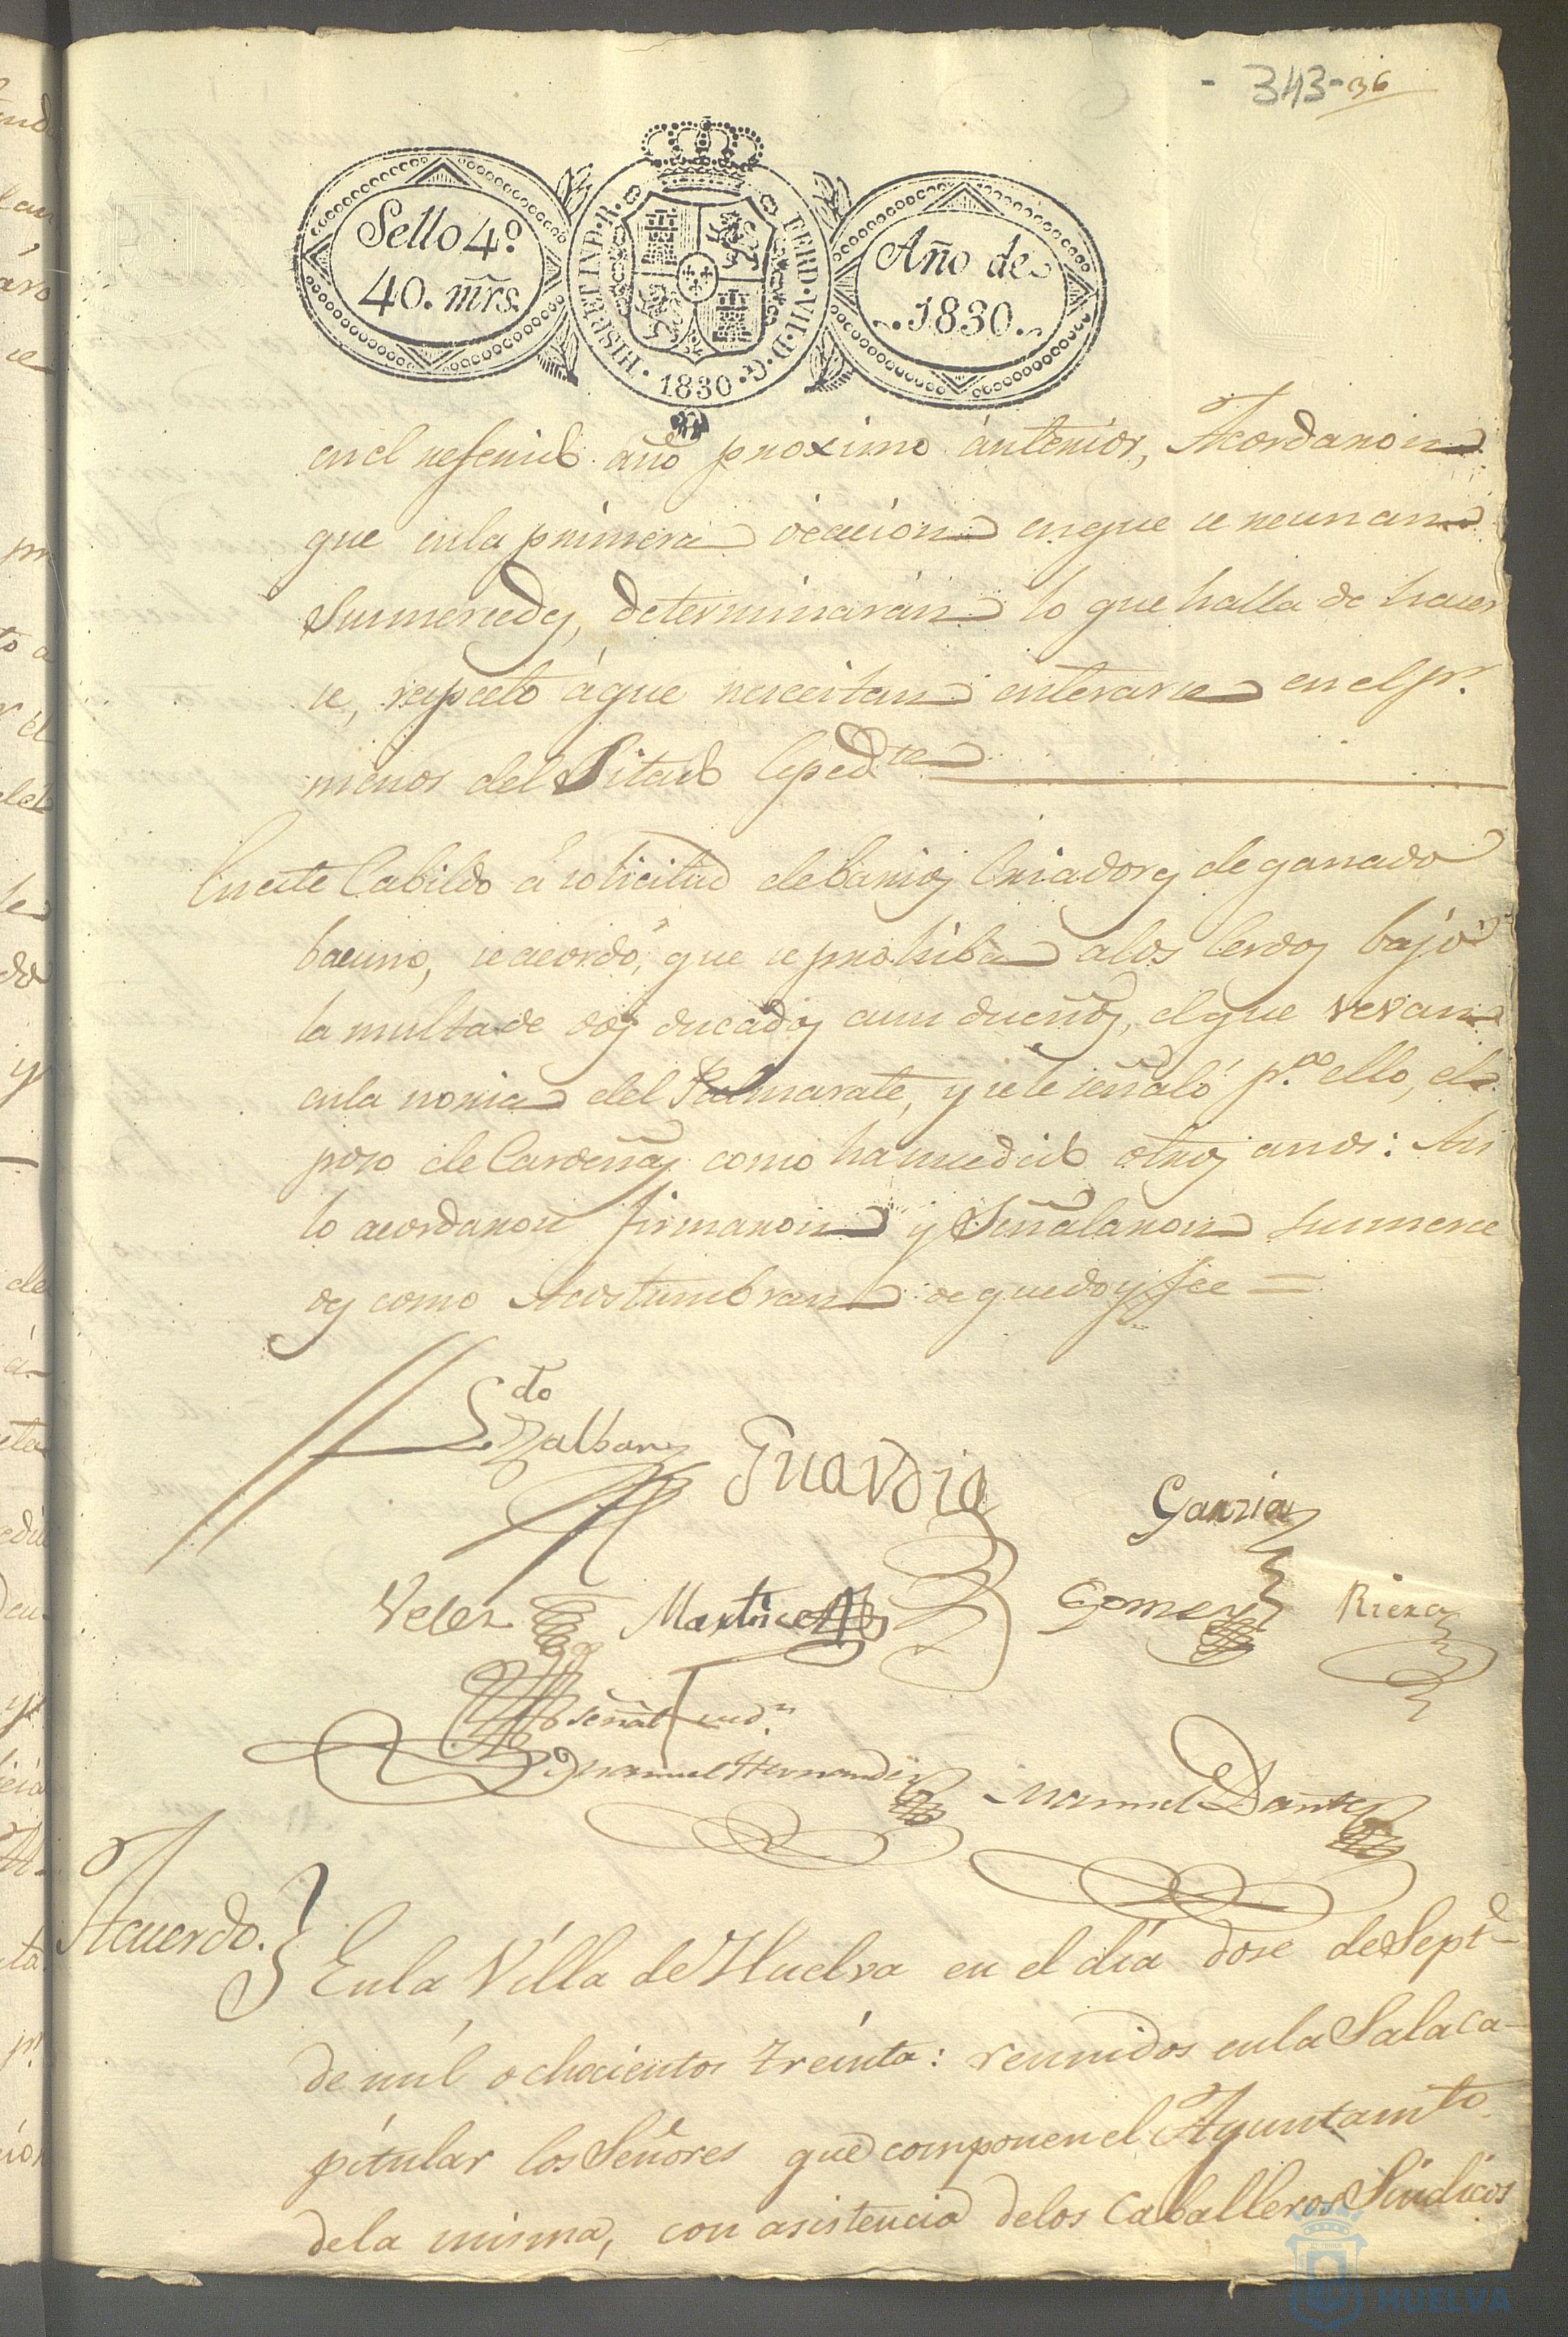 - 343 - 36
Sello 4º
40. mrs.
HISP. ET IND. R.
FERD. VII. D. G.
1830
Año de
1830.
en el referido año proximo ánterior, Acordaron
que en la primera ocacion en que se reunan
Sus mercedes, determinarán lo que halla de hacer
se, respecto á que necesitan enterarse en el pr.
menor del Sitado Espedte
En este Cabildo á solicitud de barios Criadores de ganado
bacuno, se acordó, que se prohiba a los Cerdos bajo
la multa de dos ducados a su dueños, el que vevan
en la noria del Palmarate, y se le señaló p.a ello, el
poso de Cardeñas como ha sucedido otros anos: Asi
lo acordaron firmaron y Señalaron sus merce
des como Acostumbran de que doy fee =
L.do Balbany
Guardia
Garzia
Velez
Martinez
Gomez
Riera
señal sind.n
Manuel Hernandez
Manuel Dante
Acuerdo.
En la Villa de Huelva en el día dose de Septe
de mil ochocientos treinta: reunidos en la Sala ca-
pitular los Señores que componen el Ayuntamto
de la misma, con asistencia de los Caballeros Sindicos
HUELVA